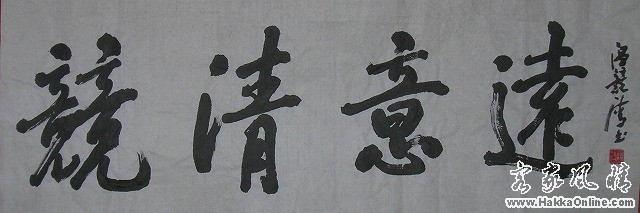 競清意遠
客家风情
www.HakkaOnline.com